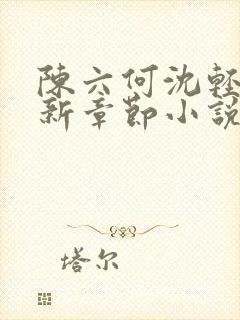 陳六何沈輕
新章節小說
塔尔